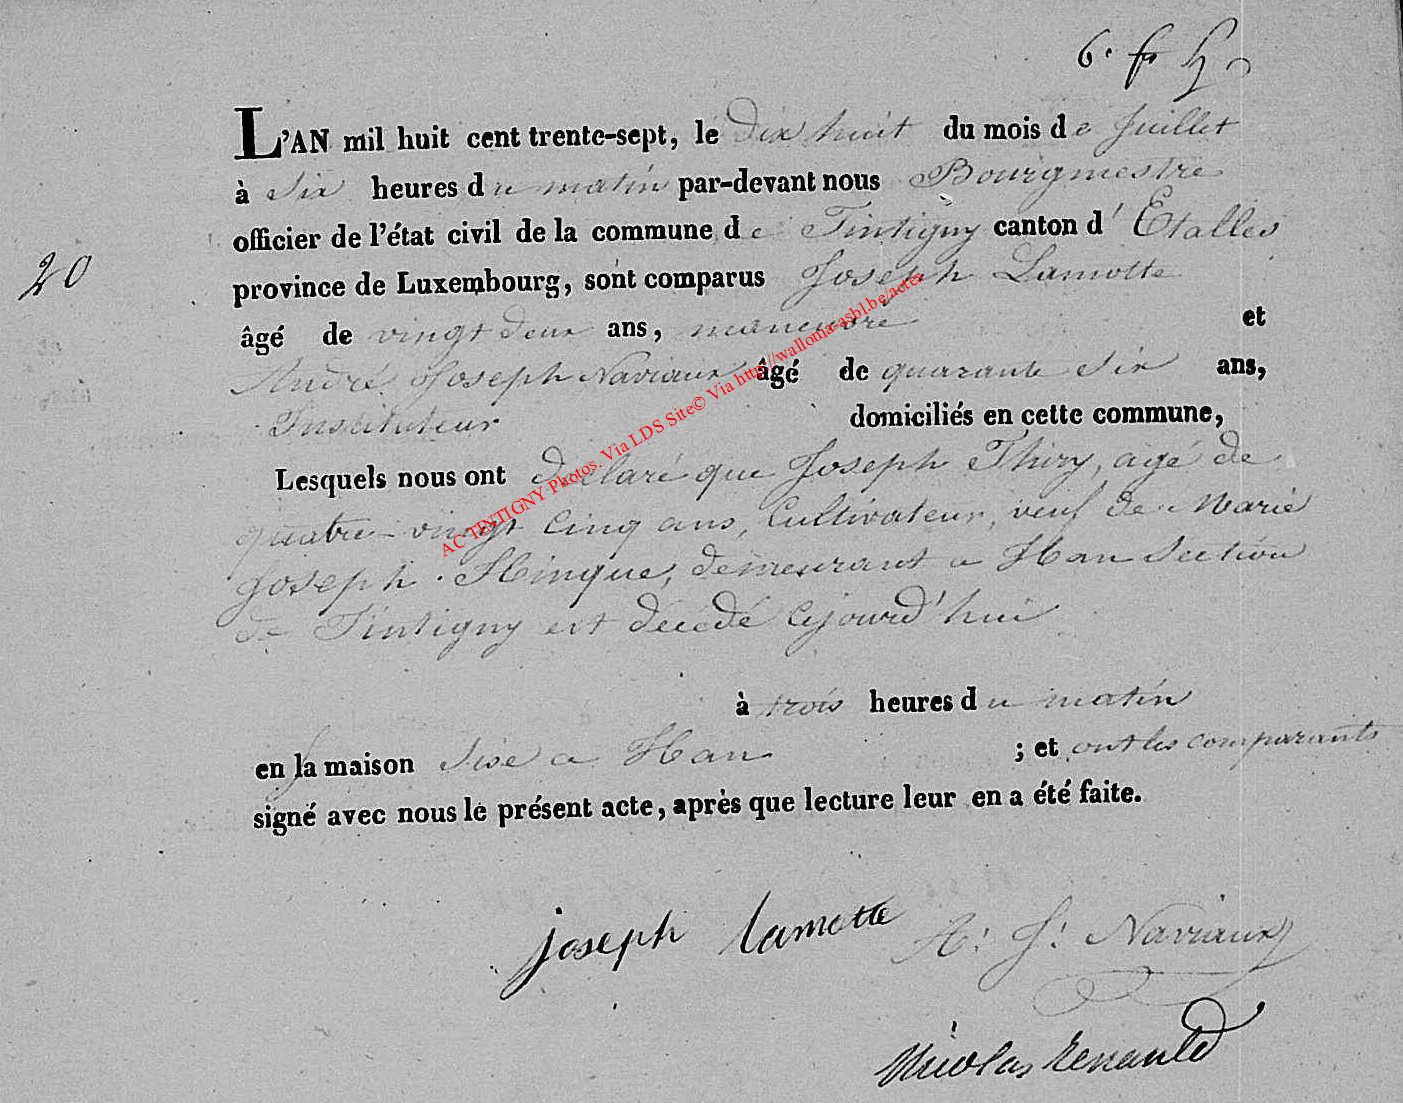 L'AN mil huit cent trente-sept, le dix huit du mois de Juillet
à Six heures du matin par-devant nous Bourgmestre
officier de l'état civil de la commune de Tintigny canton d'Etalles
20
province de Luxembourg, sont comparus Joseph Lamotte
âgé de vingt deux ans, manœuvre et
André Joseph Naviaux âgé de quarante Six ans,
Instituteur domiciliés en cette commune,
Lesquels nous ont déclaré que Joseph Thiry, agé de
quatre-vingt cinq ans, Cultivateur, veuf de Marie
Joseph Hinque, demeurant a Han Section
de Tintigny est décédé cejourd'hui
à trois heures du matin
en la maison Sise a Han ; et ont les comparants
signé avec nous le présent acte, après que lecture leur en a été faite.
joseph lamotte A: J: Naviaux
Nicolas Renauld
AC TINTIGNY Photos. Via LDS Site© Via http://wallonia-asbl.be/actes